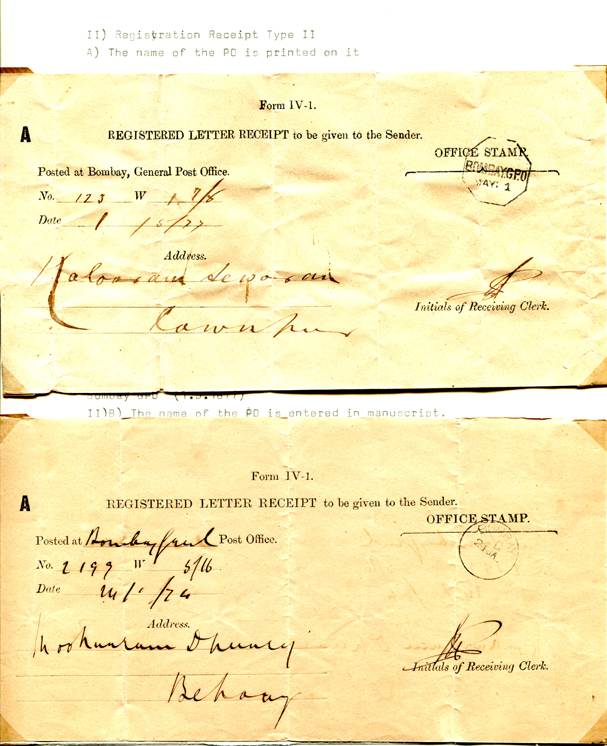 II) Registration Receipt Type II
A) The name of the PO is printed on it
Form IV-1.
A
REGISTERED LETTER RECEIPT to be given to the Sender.
OFFICE STAMP.
BOMBAY.G.P.O
MAY: 1
Posted at Bombay, General Post Office.
No. 123 W 1 7/8
Date 1/5/77
Address.
Cawnpur
Initials of Receiving Clerk.
Bombay GPO (1.5.1877)
II)B) The name of the PO is entered in manuscript.
Form IV-1.
A
REGISTERED LETTER RECEIPT to be given to the Sender.
OFFICE STAMP.
Posted at Bombay Genl Post Office.
No. 2199 W 5/16
Date
Address.
Initials of Receiving Clerk.